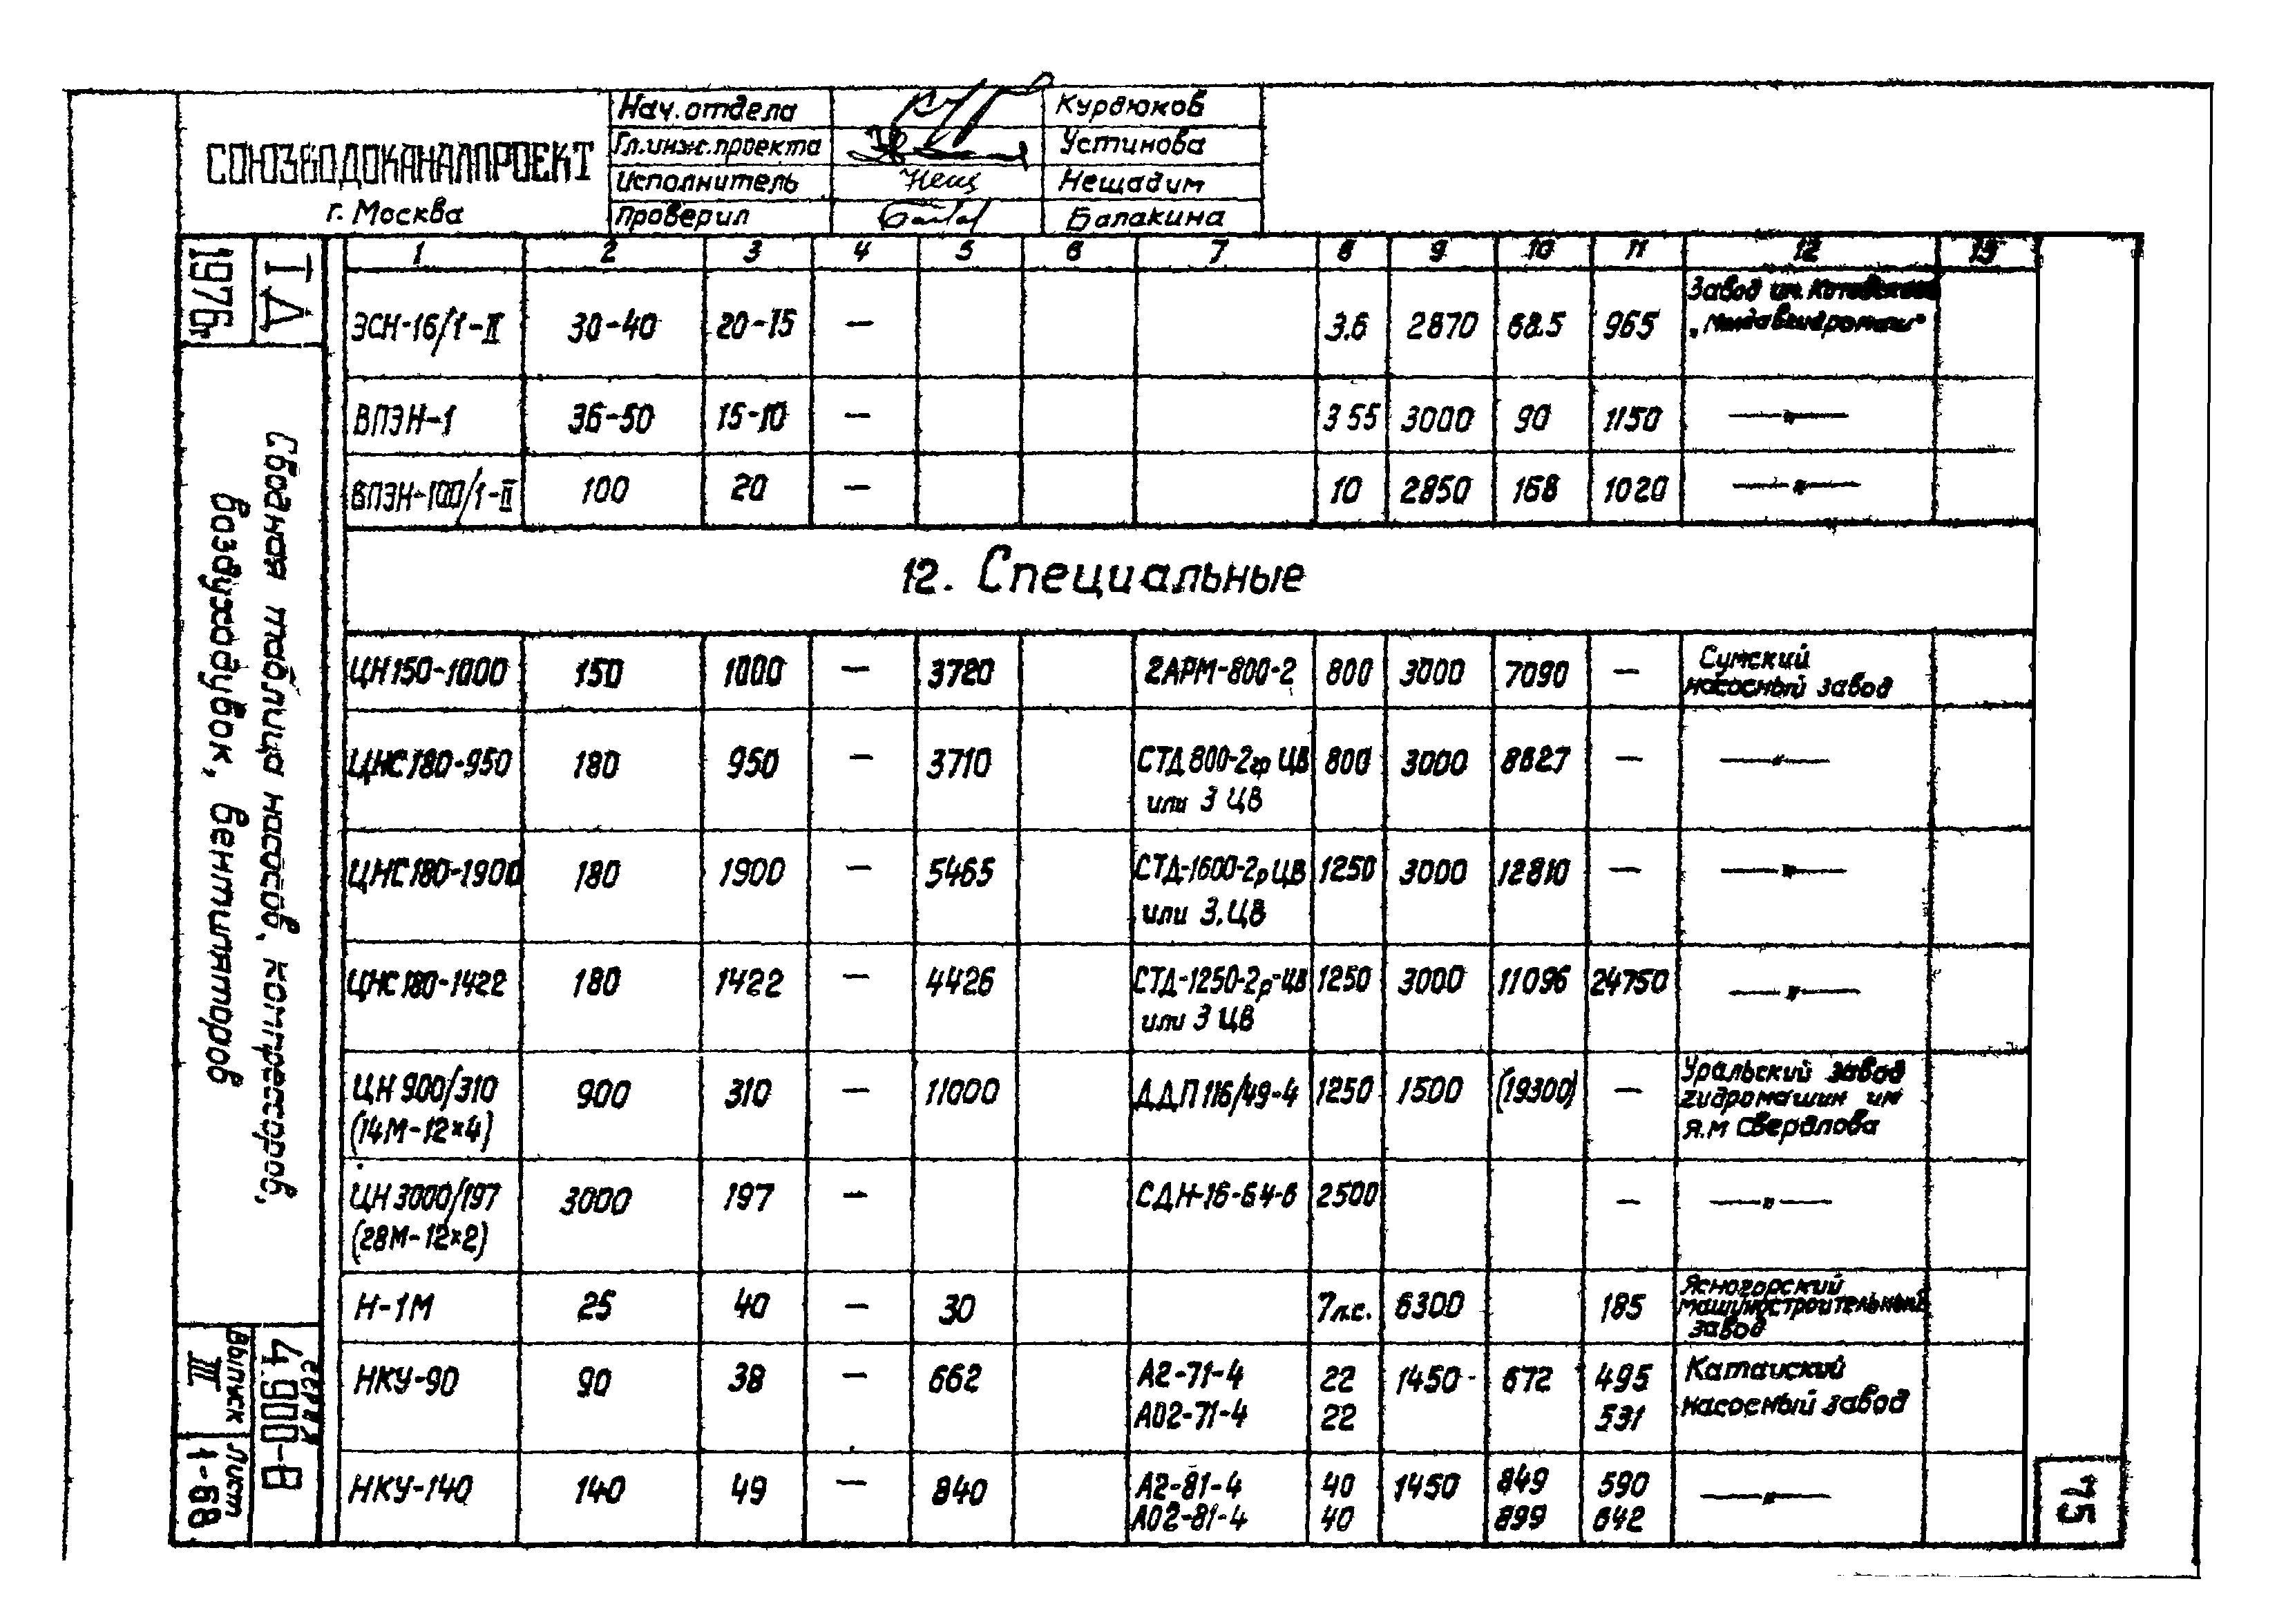 СОЮЗВОДОКАНАЛПРОЕКТ
г. Москва
Нач. отдела Курдюков
Гл.инж.проекта Устинова
Исполнитель Нещадим
Проверил Балакина
ТД
1976г
Сводная таблица насосов, компрессоров,
воздуходувок, вентиляторов
серия
4.900-8
выпуск
III
Лист
1-68
1 2 3 4 5 6 7 8 9 10 11 12 13
ЭСН-16/1-II 30-40 20-15 — 3.6 2870 68.5 965 Завод им.
ВПЭН-1 36-50 15-10 — 3 55 3000 90 1150 —"—
ВПЭН-100/1-II 100 20 — 10 2850 168 1020 —"—
12. Специальные
ЦН150-1000 150 1000 — 3720 2АРМ-800-2 800 3000 7090 — Сумский
насосный завод
ЦНС180-950 180 950 — 3710 СТД 800-2гр ЦВ 800 3000 8627 — —"—
или 3 ЦВ
ЦНС180-1900 180 1900 — 5465 СТД-1600-2р ЦВ 1250 3000 12810 — —"—
или 3.ЦВ
ЦНС180-1422 180 1422 — 4426 СТД-1250-2р-ЦВ 1250 3000 11096 24750 —"—
или 3 ЦВ
ЦН 900/310 900 310 — 11000 ДДП 116/49-4 1250 1500 (19300) — Уральский завод
(14М-12×4) гидромашин им
Я.М Свердлова
ЦН 3000/197 3000 197 — СДН-16-64-6 2500 — —"—
(28М-12×2)
Н-1М 25 40 — 30 7л.с. 6300 185 Ясногорский
машиностроительный
завод
НКУ-90 90 38 — 662 А2-71-4 22 1450 672 495 Катайский
АО2-71-4 22 531 насосный завод
НКУ-140 140 49 — 840 А2-81-4 40 1450 849 590 —"—
АО2-81-4 40 899 642
75